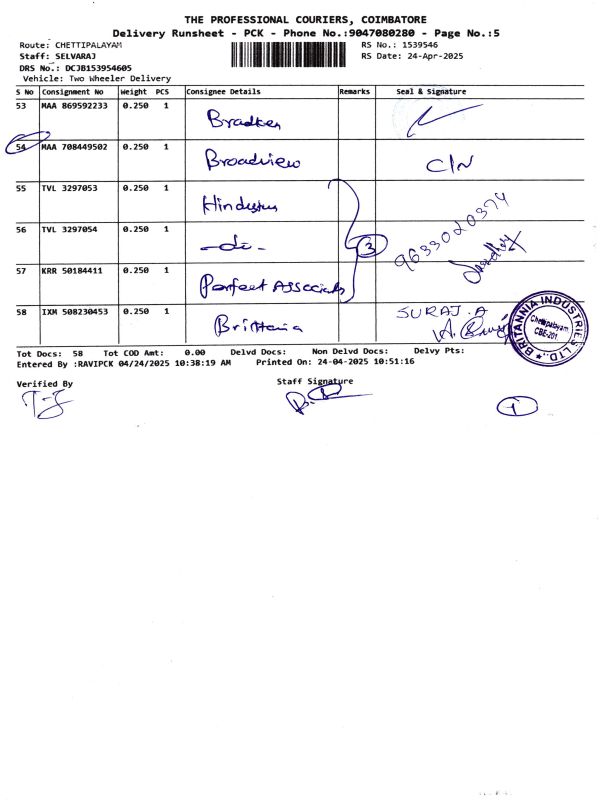 THE PROFESSIONAL COURIERS, COIMBATORE
Delivery Runsheet - PCK - Phone No.:9047080280 - Page No.:5
Route: CHETTIPALAYAM RS No.: 1539546
Staff: SELVARAJ RS Date: 24-Apr-2025
DRS No.: DCJB153954605
Vehicle: Two Wheeler Delivery
S No Consignment No Weight PCS Consignee Details Remarks Seal & Signature
53 MAA 869592233 0.250 1
54 MAA 708449502 0.250 1 Broadview C/N
55 TVL 3297053 0.250 1
56 TVL 3297054 0.250 1 -do- 3 9633020374
57 KRR 50184411 0.250 1 Perfect Associates
58 IXM 508230453 0.250 1 Brittania SURAJ.A
BRITANNIA INDUSTRIES LTD.,
Chettipalayam,
CBE-201
Tot Docs: 58 Tot COD Amt: 0.00 Delvd Docs: Non Delvd Docs: Delvy Pts:
Entered By :RAVIPCK 04/24/2025 10:38:19 AM Printed On: 24-04-2025 10:51:16
Verified By Staff Signature
1